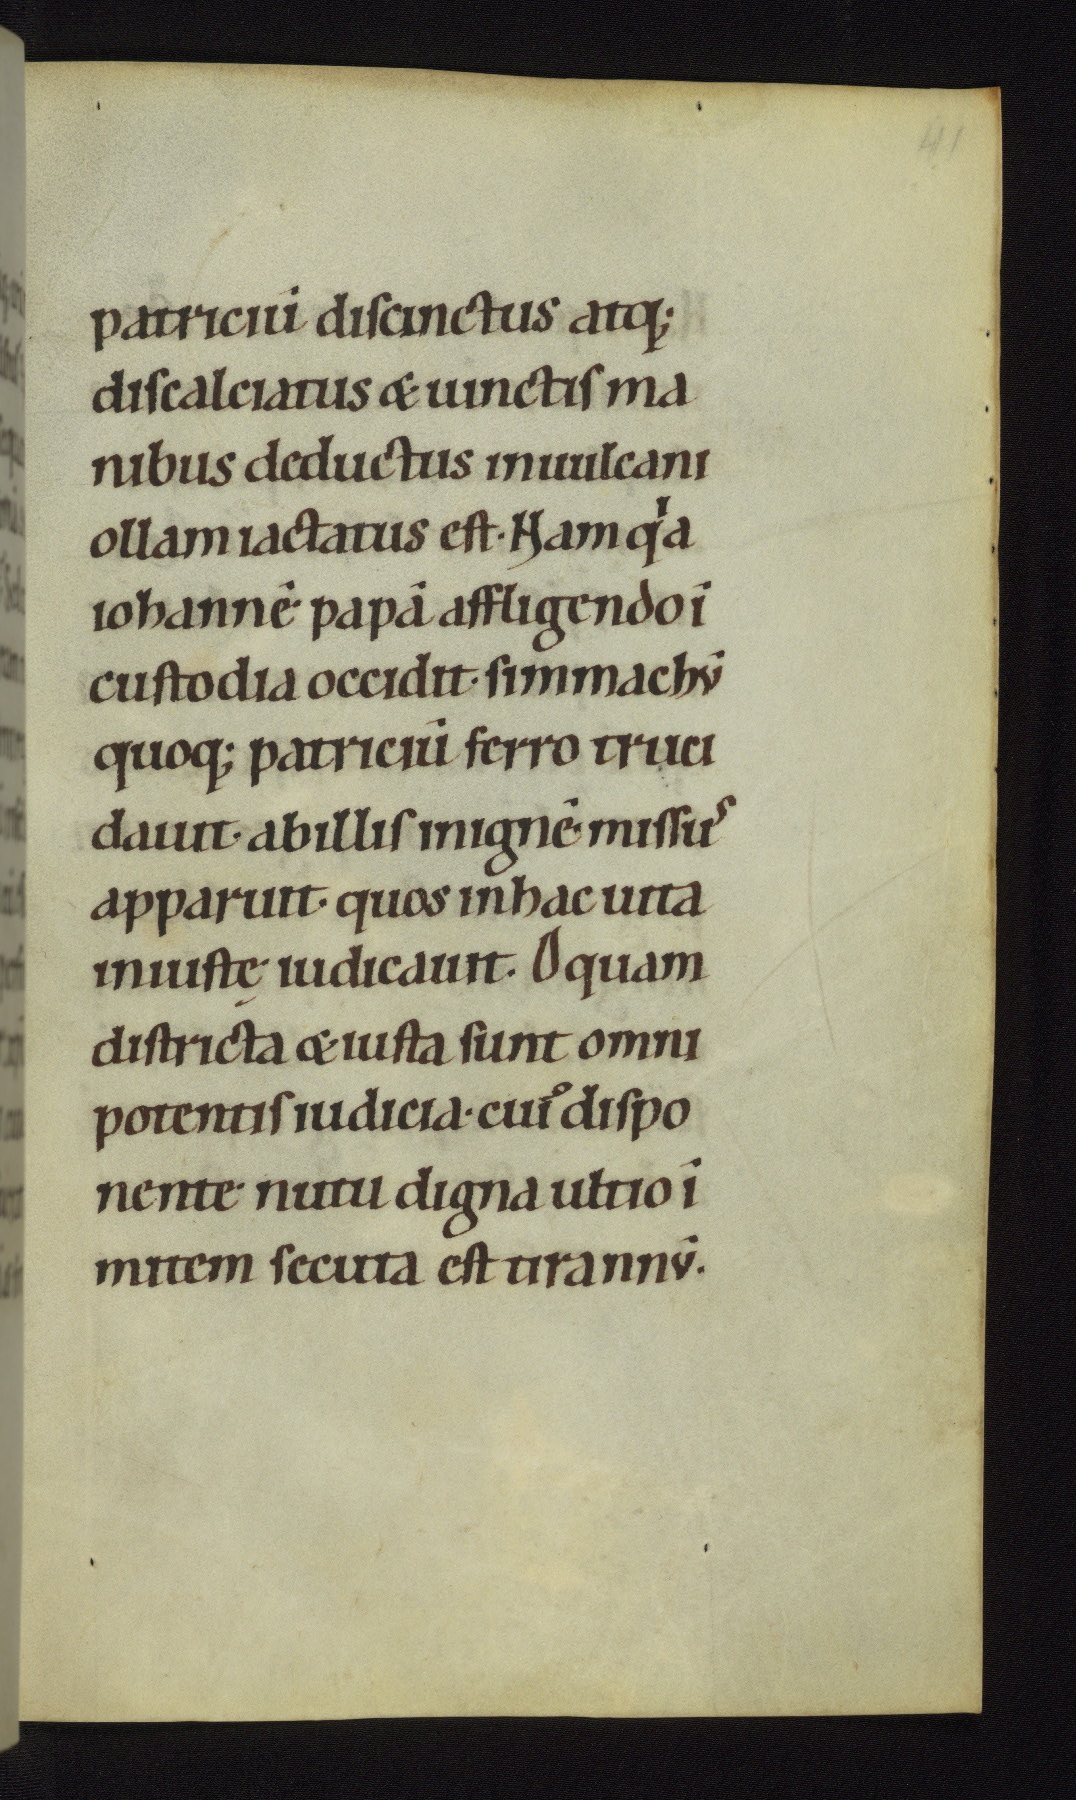 41
patriciū discinctus atq;
discalciatus & uinctis ma
nibus deductus inuulcani
ollam iactatus est. Nam qͥa
iohannē papā affligendo ī
custodia occidit. simmachū
quoq; patriciū ferro truci
dauit. abillis inignē missuˢ
apparuit. quos inhac uita
iniustę iudicauit. O quam
districta & iusta sunt omni
potentis iudicia. cui᷒ dispo
nente nutu digna ultio ī
mitem secuta est tirannū.